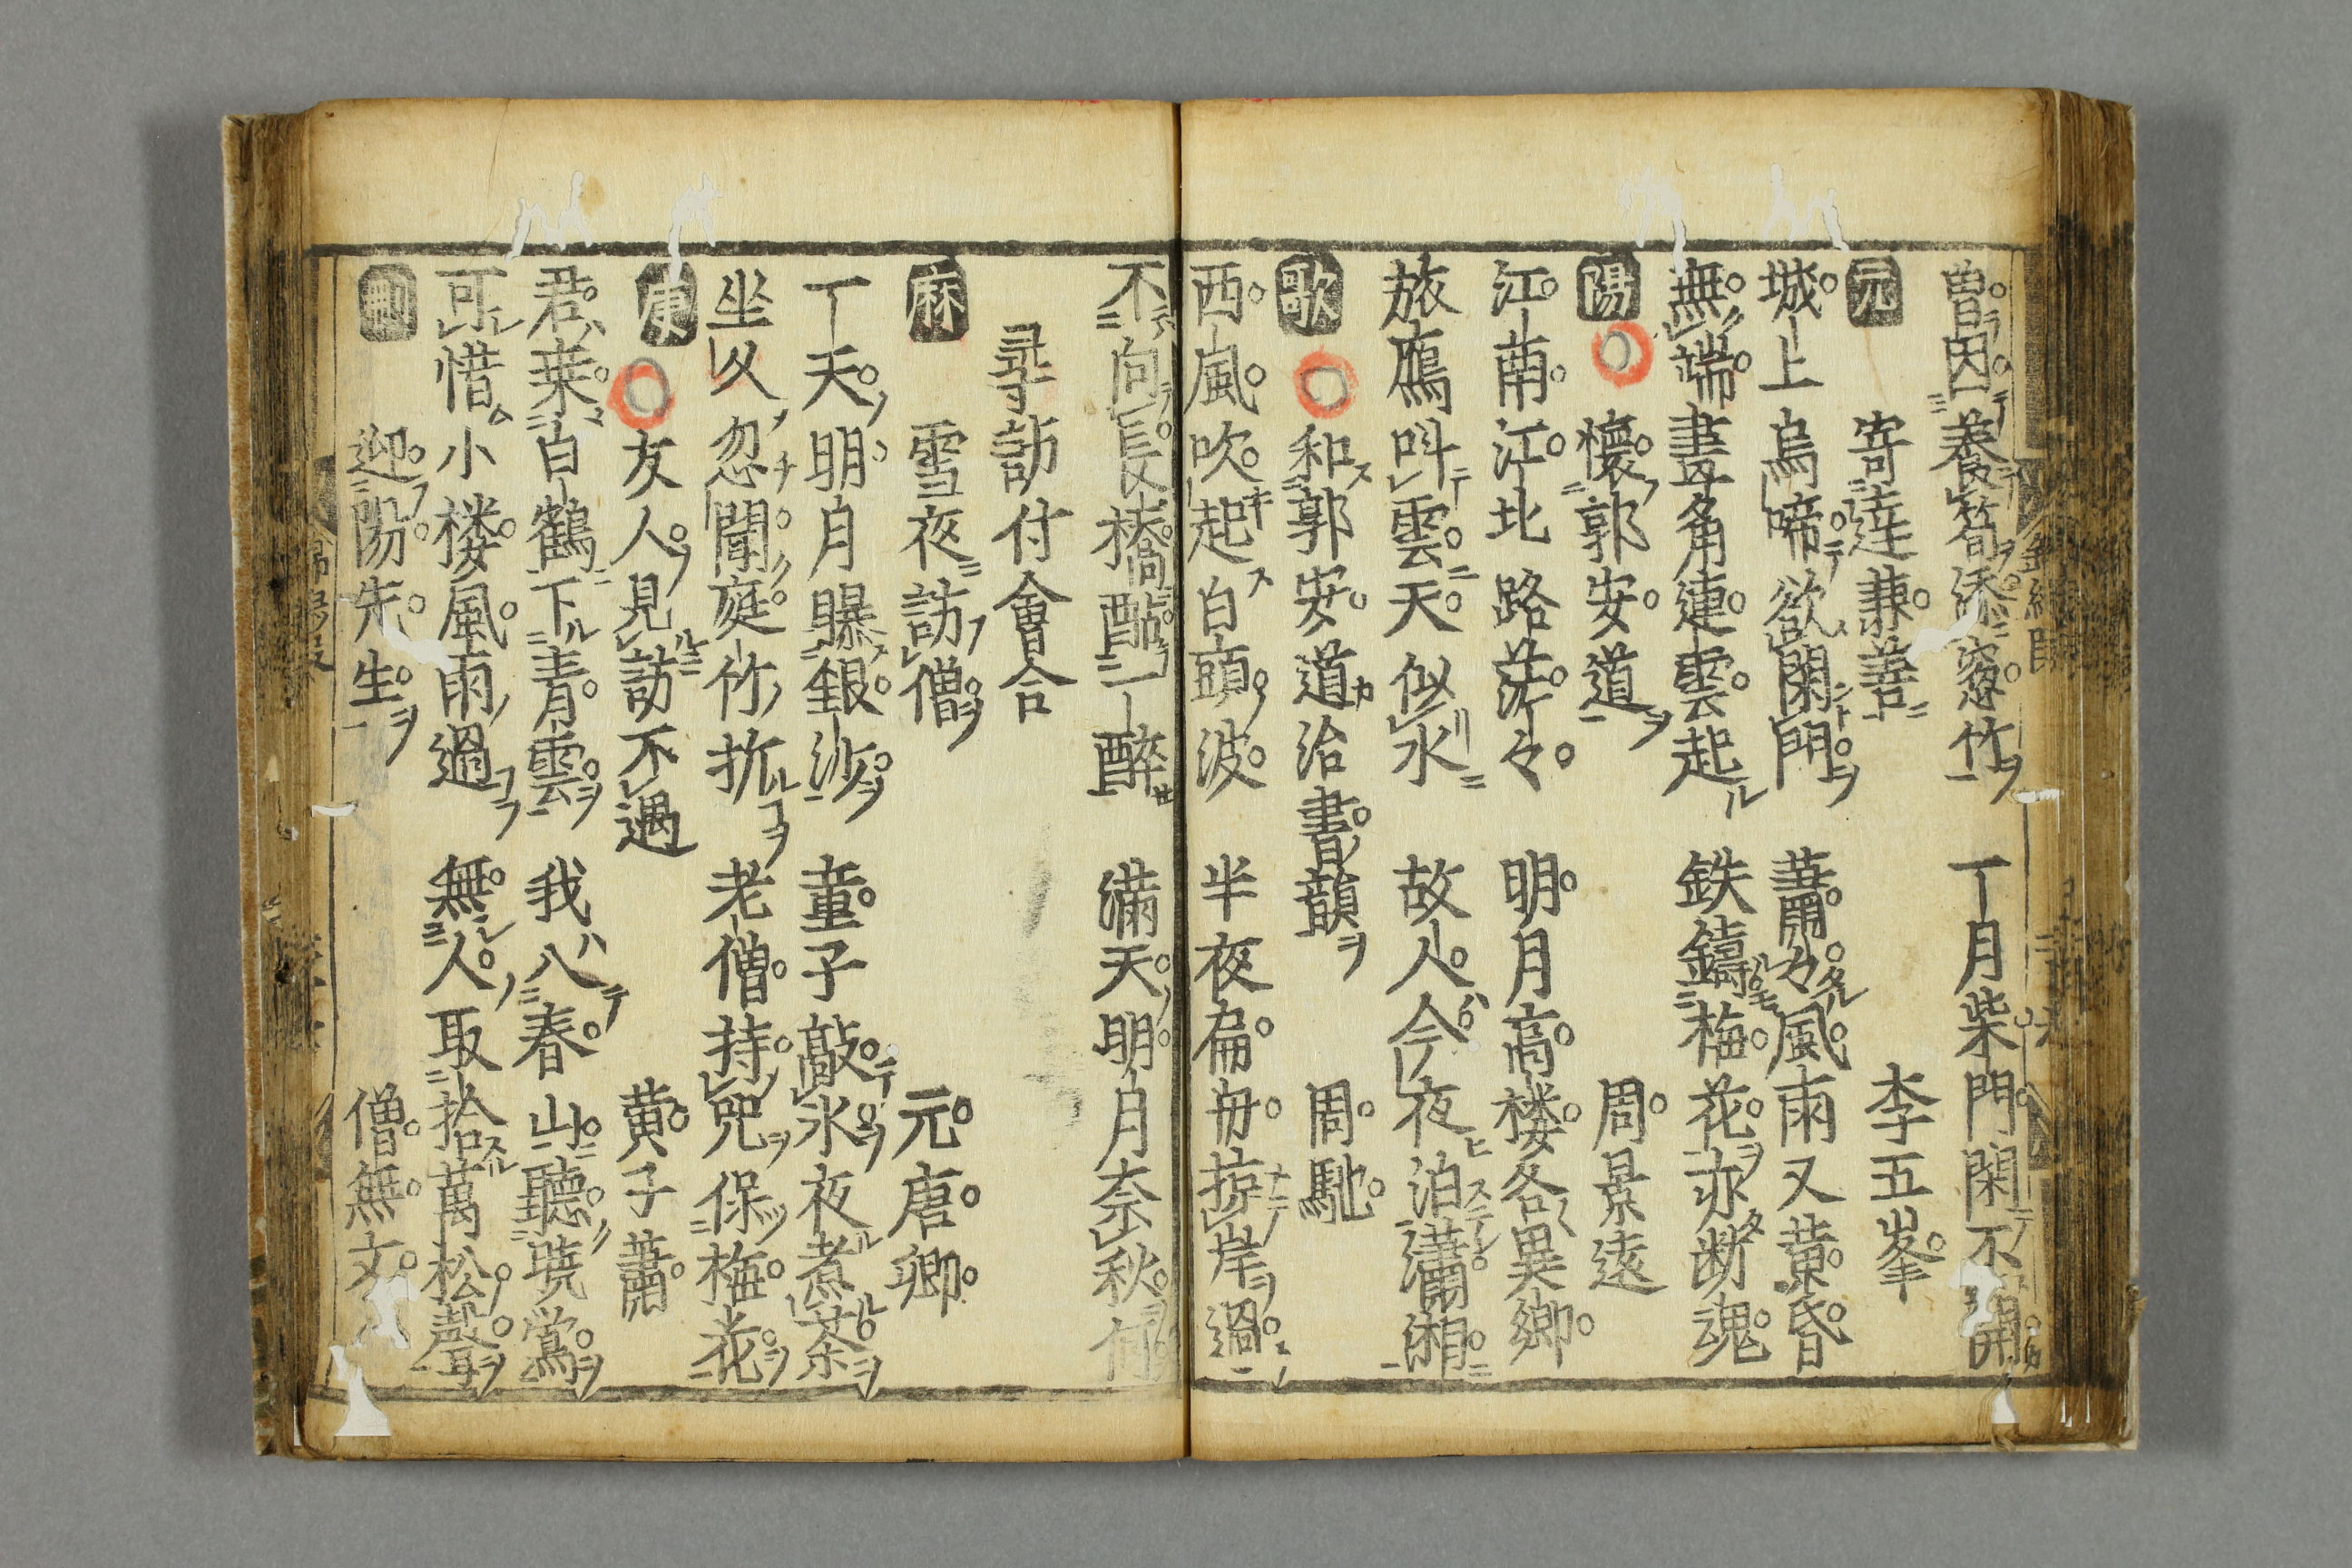 曽因養笋添窓竹 一月柴門閑不開
元 寄達兼善 李五峯
城上烏啼欲閉門 蕭々風雨又黄昏
無端畫角連雲起 鉄鑄梅花亦断魂
陽 懐郭安道 周景遠
江南江北路茫々 明月高楼各異郷
旅鴈呌雲天似水 故人今夜泊瀟湘
歌 和郭安道治書韻 周馳
西風吹起白頭波 半夜扁舟掠岸過
不向長橋酤一醉 満天明月奈秋何
尋訪付會合
麻 雪夜訪僧 元唐卿
一天明月曝銀沙 童子敲氷夜煮茶
坐久忽聞庭竹折 老僧持咒保梅花
庚 友人見訪不遇 黄子蕭
君来白鶴下青雲 我入春山聽暁鴬
可惜小楼風雨過 無人取拾萬松聲
迎陽先生 僧無文